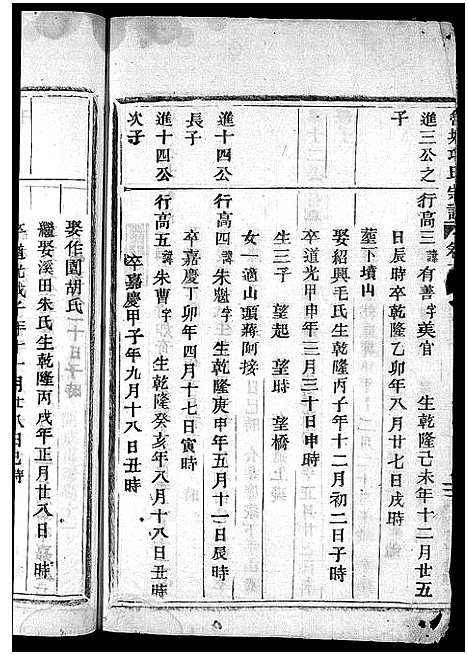 項氏宗譜
進三公之 行高三 諱有善 字美官 生乾隆己未年十二月廿五
子
日辰時卒乾隆乙卯年八月廿七日戌時
塟下墳山
娶紹興毛氏生乾隆丙子年十二月初二日子時
卒道光甲申年三月三十日申時
生三子 望起 望時 望橋
女一適山頭蔣阿接
進十四公 行高四 諱朱 字 生乾隆庚申年五月十一日辰時
長子
卒嘉慶丁卯年四月十七日寅時
進十四公 行高五 諱朱曹 字 生乾隆癸亥年八月十八日丑時
次子
卒嘉慶甲子年九月十八日丑時
娶住園胡氏
繼娶溪田朱氏生乾隆丙戌年正月廿八日時
卒道光戊子年十一月廿八日巳時